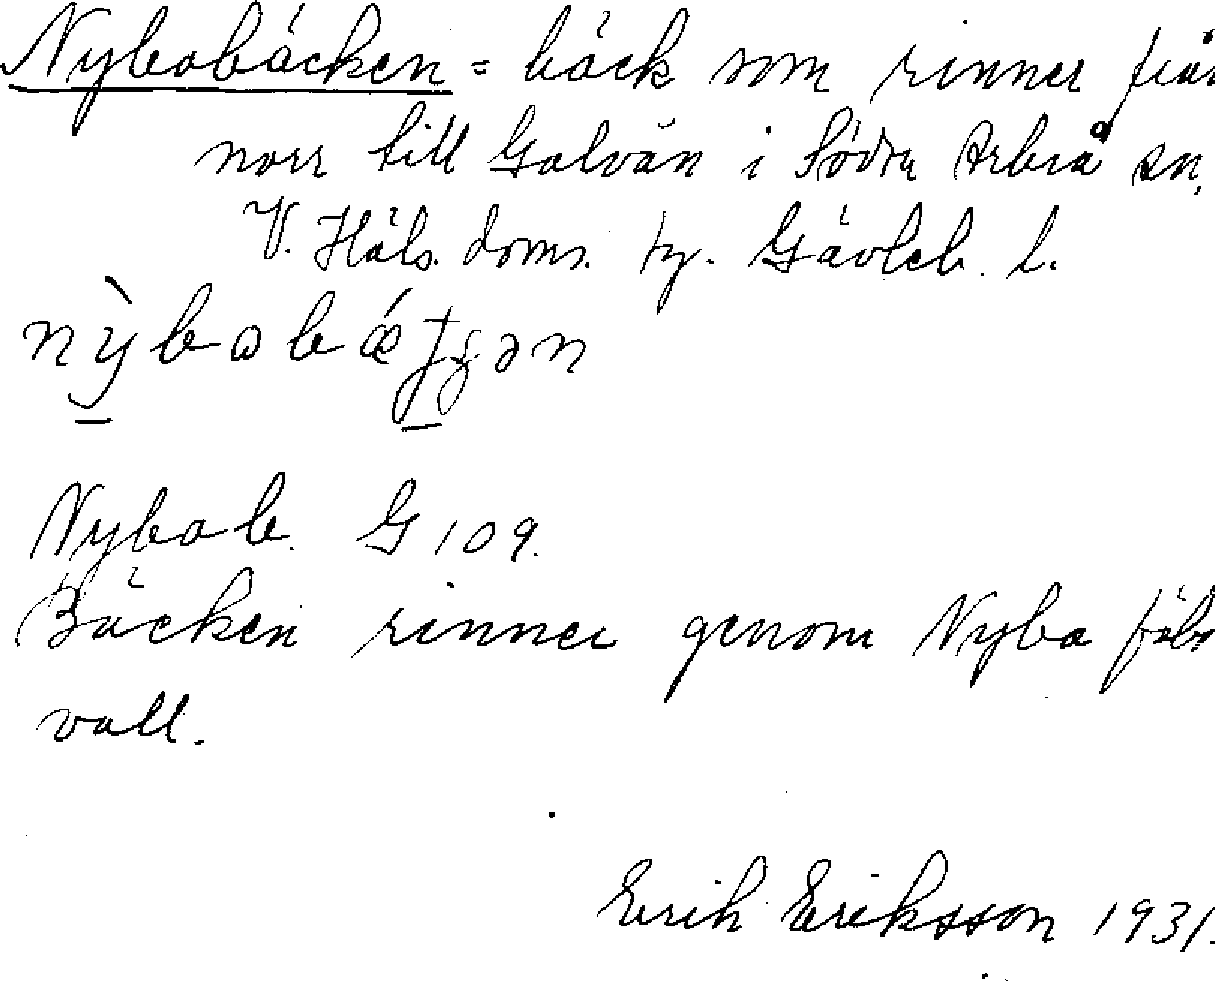 Nybobäcken = bäck som rinner från
norr till Galvån i Södra Arbrå sn,
V. Häls. doms. ty. Gävleb. l.
Nybob. G 109.
Bäcken rinner genom Nybo fäbo
vall.
Erik Eriksson 1931.